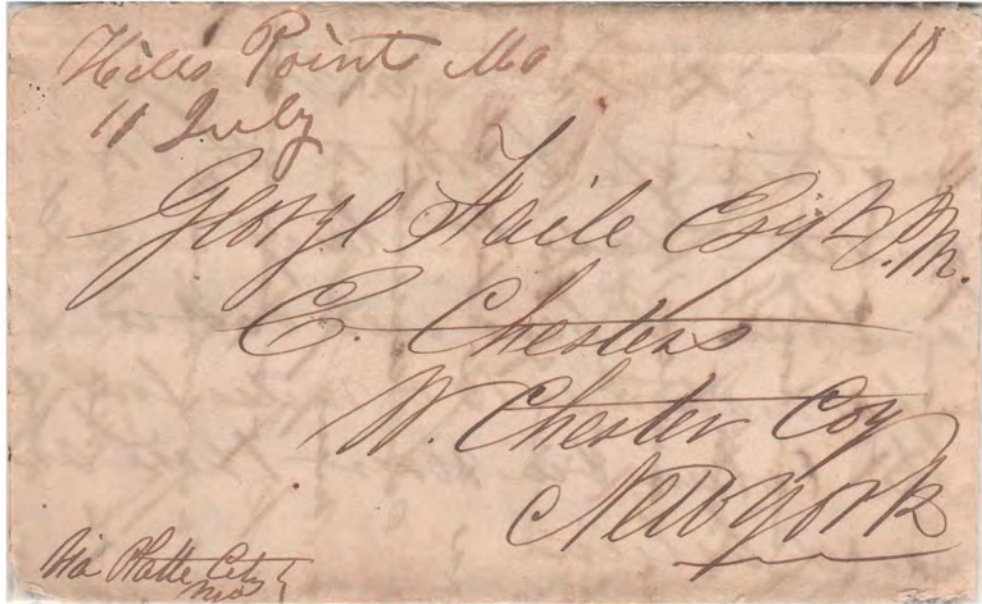 Hills Point Mo 10
11 July
George Faile Esqr P.M.
E. Chester
W. Chester Coy
New York
Via Platte City
Mo